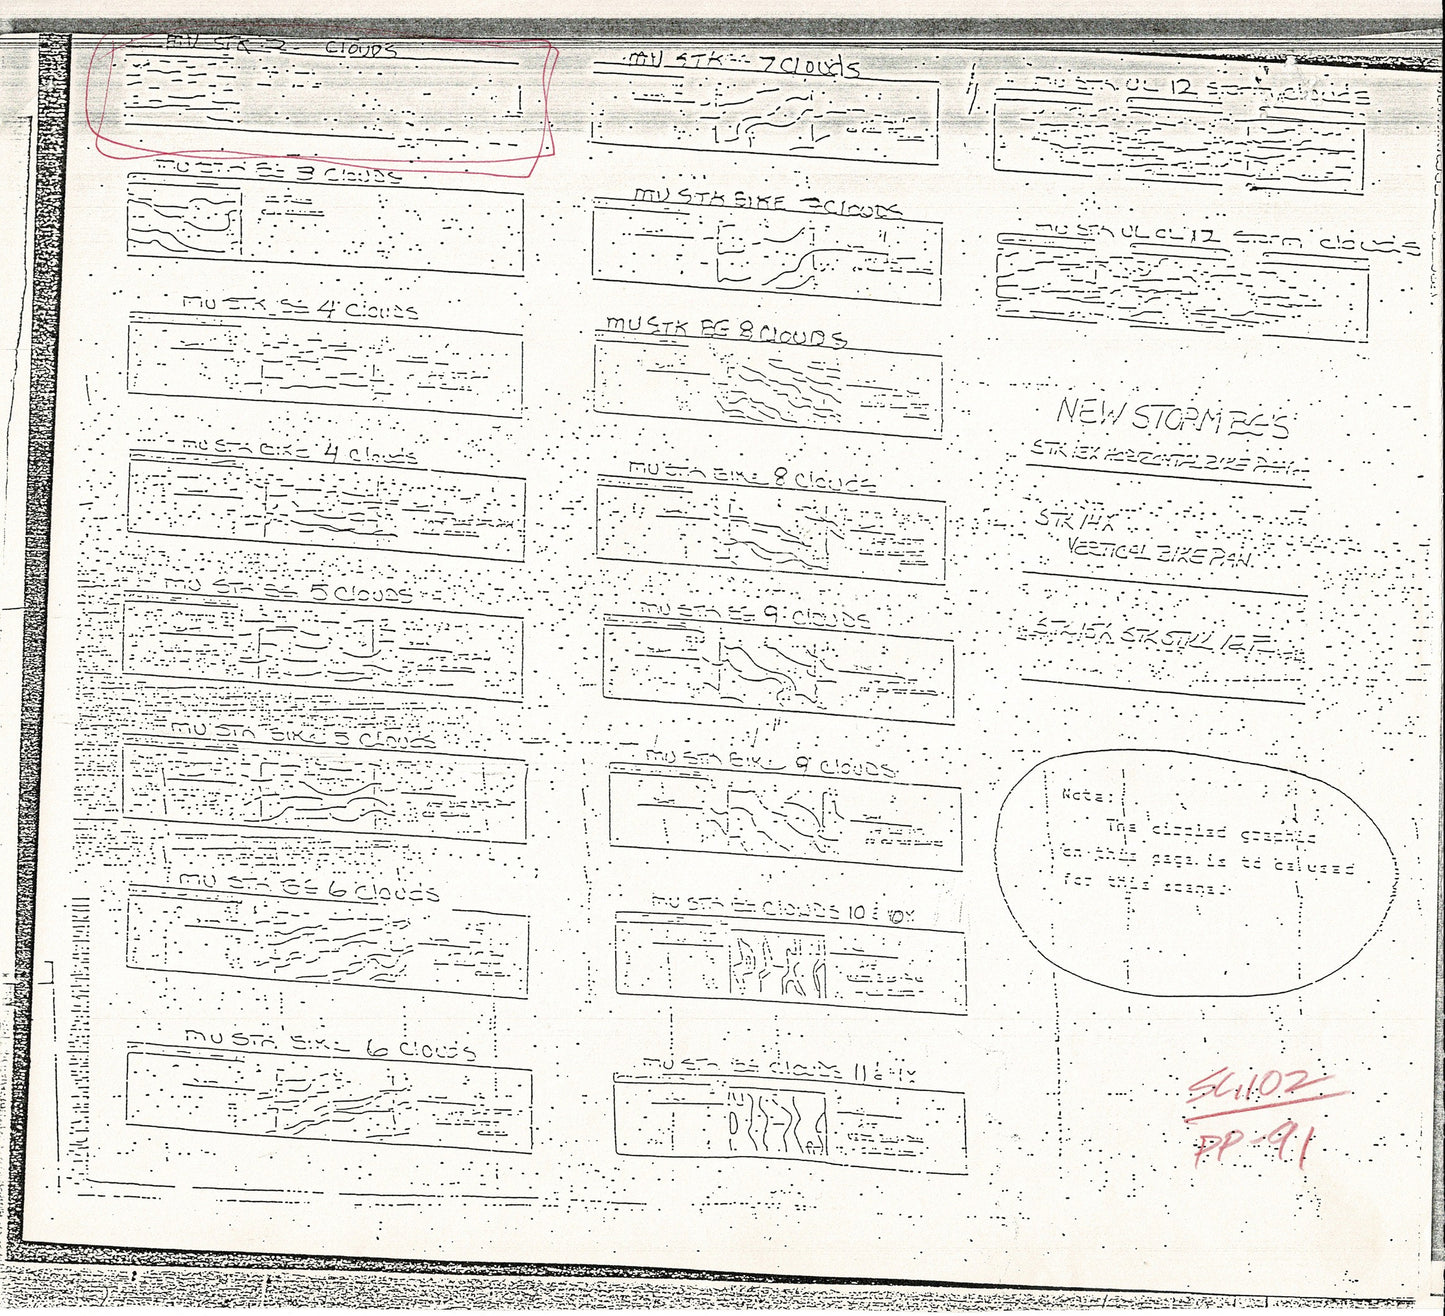 MU STK 2 CLOUDS
MU STK BG 3 CLOUDS
MU STK BG 4 CLOUDS
MU STK BIKE 4 CLOUDS
MU STK BG 5 CLOUDS
MU STK BIKE 5 CLOUDS
MU STK BG 6 CLOUDS
MU STK BIKE 6 CLOUDS
MU STK 7 CLOUDS
MU STK BIKE 7 CLOUDS
MU STK BG 8 CLOUDS
MU STK BIKE 8 CLOUDS
MU STK BG 9 CLOUDS
MU STK BIKE 9 CLOUDS
MU STK BG CLOUDS 10 & 10X
MU STK BG CLOUDS 11 &
MU STK UL 12 STORM CLOUDS
MU STK UL CL 12 STORM CLOUDS
NEW STORM BG'S
HORIZONTAL BIKE PAN
STK 14X
VERTICAL BIKE PAN
STK STILL
Note:
The circled graphic
on this page is to be used
for this scene.
SC.102
PP-91